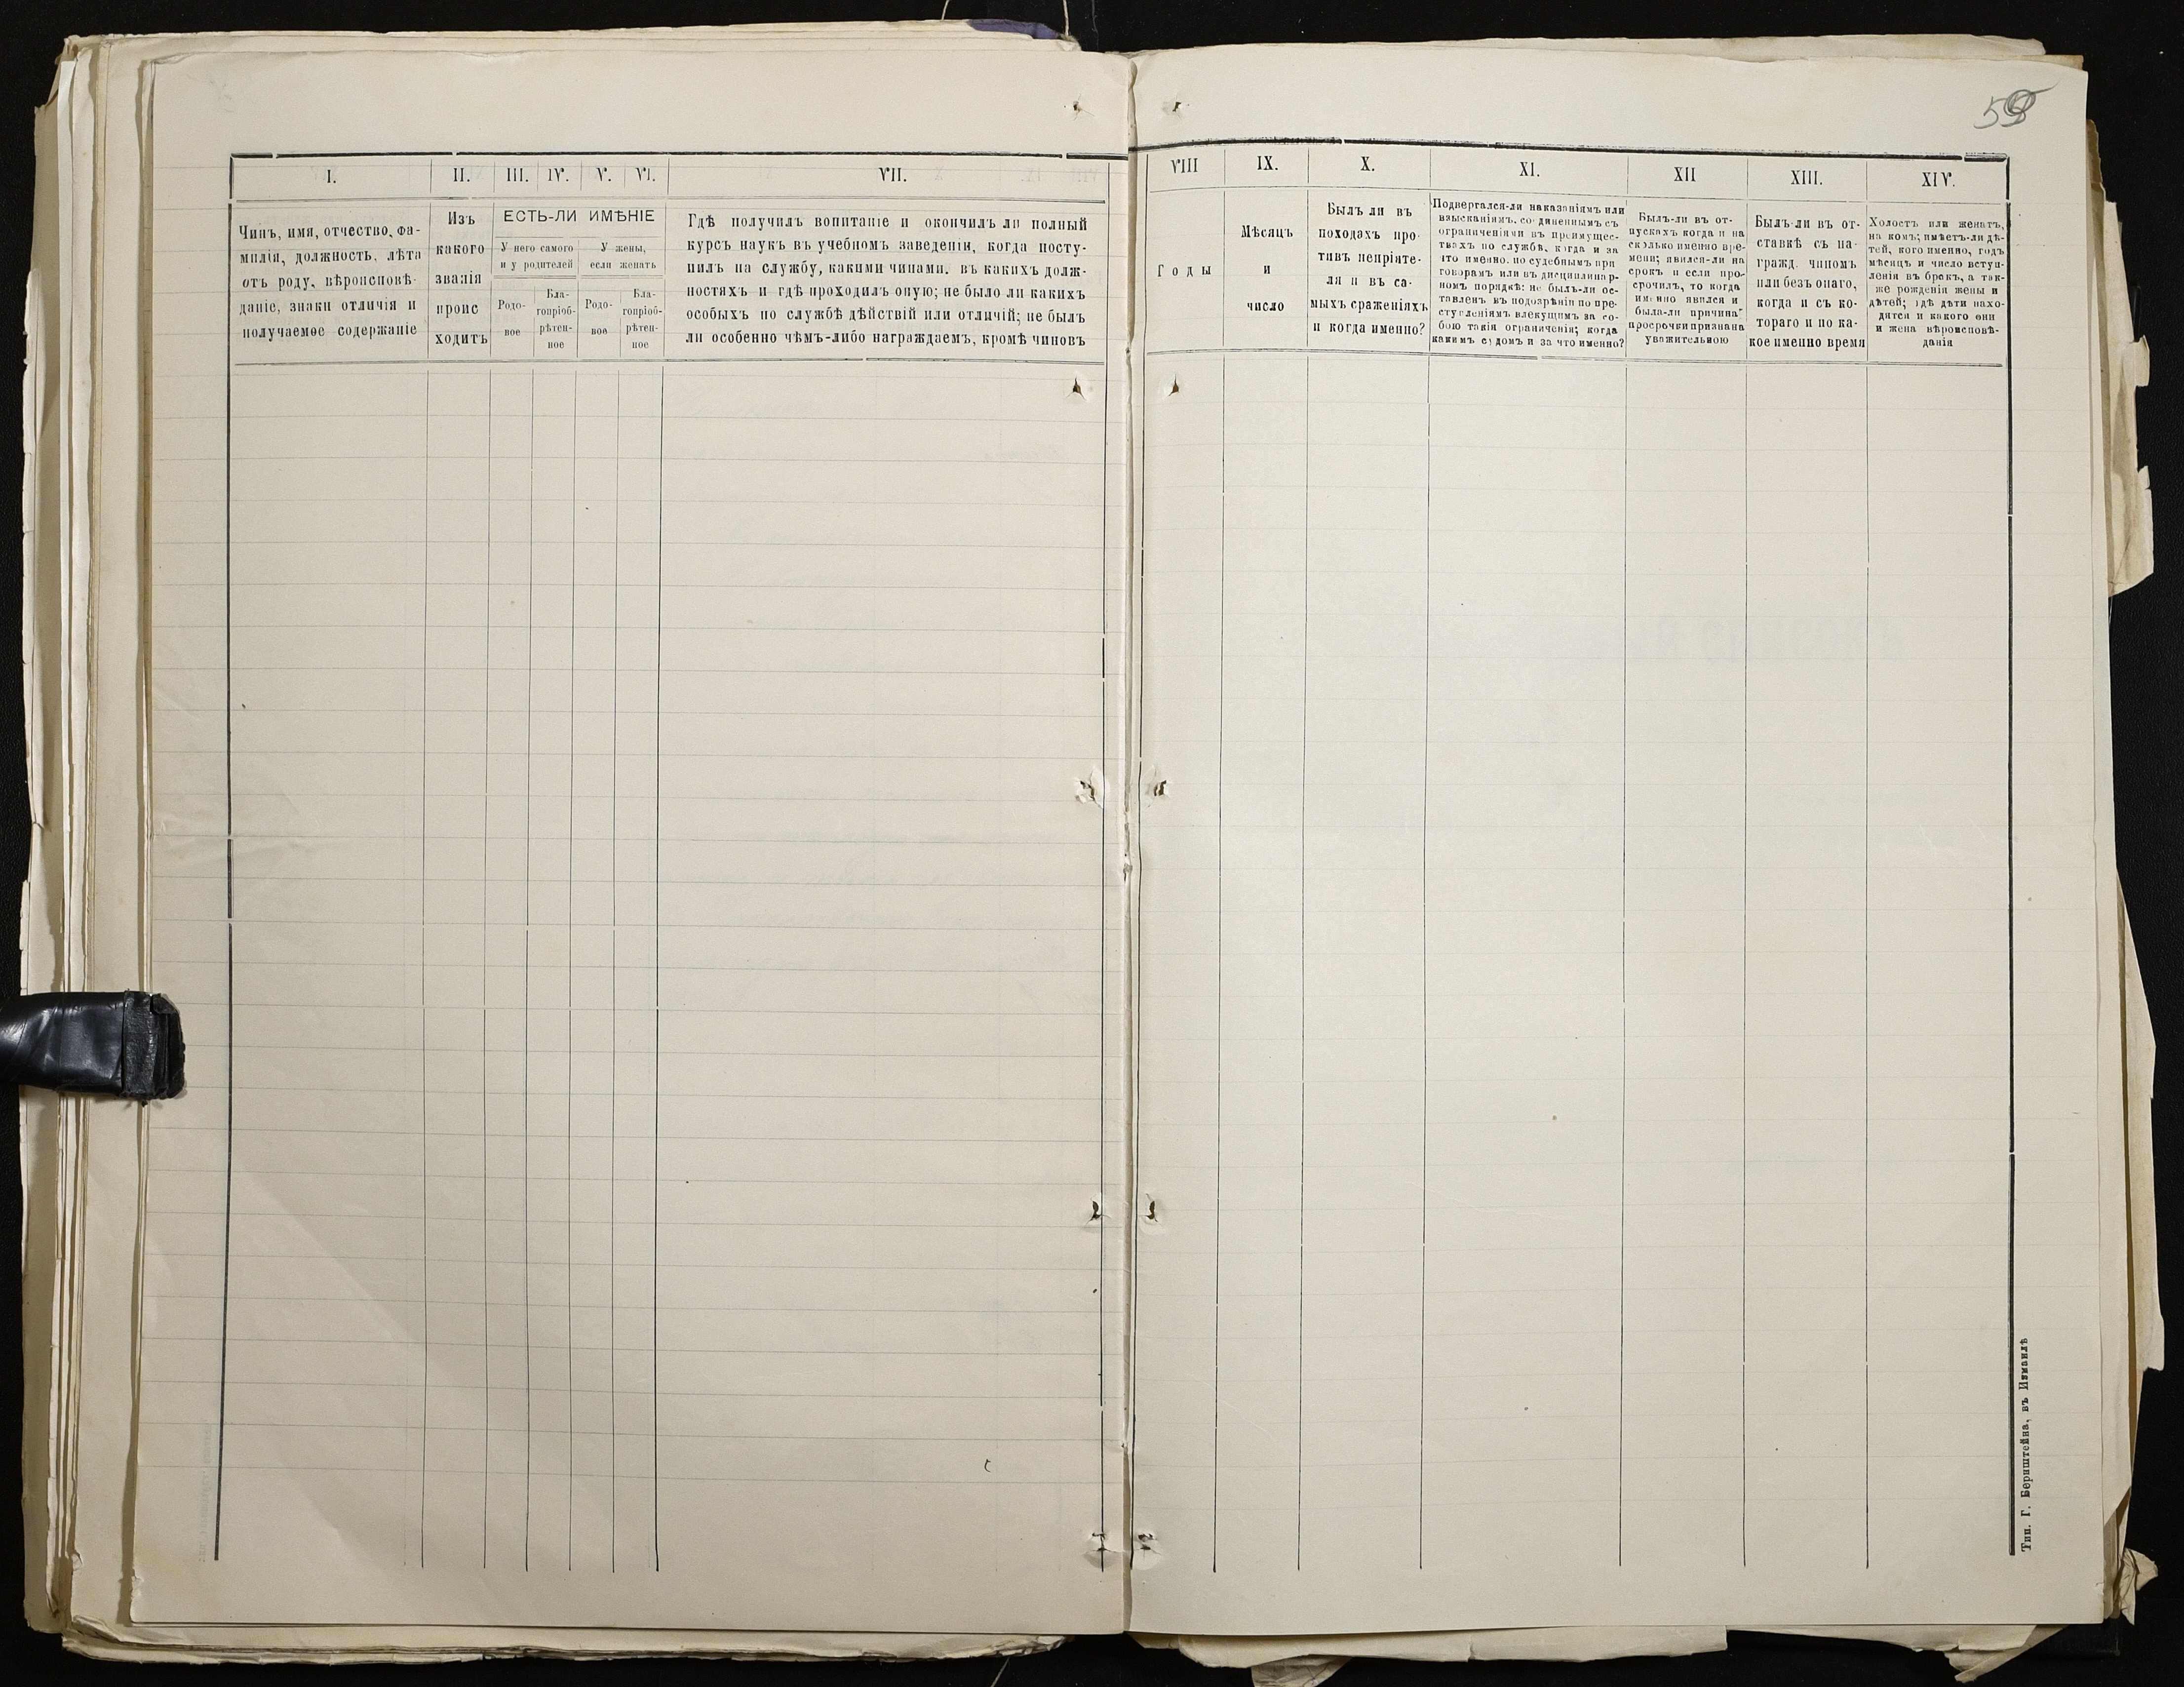 I.
Чинъ, имя, отчество, фа-
милія, должность, лѣта
отъ роду, вѣроисповѣ-
даніе, знаки отличія и
получаемое содержаніе
II.
Изъ
какого
званія
проис
ходитъ
III. IV. V. VI.
ЕСТЬ-ЛИ ИМѢНІЕ
У него самого
и у родителей
У жены,
если женатъ
Родо-
вое
Бла-
гопріоб-
рѣтен-
ное
Родо-
вое
Бла-
гопріоб-
рѣтен-
ное
VII.
Гдѣ получилъ вопитаніе и окончилъ ли полный
курсъ наукъ въ учебномъ заведеніи, когда посту-
пилъ на службу, какими чинами. въ какихъ долж-
ностяхъ и гдѣ проходилъ оную; не было ли какихъ
особыхъ по службѣ дѣйствій или отличій; не былъ
ли особенно чѣмъ-либо награждаемъ, кромѣ чиновъ
VIII
Годы
IX.
Мѣсяцъ
и
число
X.
Былъ ли въ
походахъ про-
тивъ непріяте-
ля и въ са-
мыхъ сраженіяхъ
и когда именно?
XI.
Подвергался-ли наказаніямъ или
взысканіямъ, соединеннымъ съ
ограниченіями въ преимущес-
твахъ по службѣ, когда и за
что именно. по судебнымъ при
говорамъ или въ дисциплинар-
номъ порядкѣ: не былъ-ли ос-
тавленъ въ подозрѣніи по пре-
ступленіямъ влекущимъ за со-
бою такія ограниченія; когда
какимъ судомъ и за что именно?
XII
Былъ-ли въ от-
пускахъ когда и на
сколько именно вре-
мени; явился-ли на
срокъ и если про-
срочилъ, то когда
именно явился и
была-ли причина
просрочки признана
уважительною
XIII.
Былъ-ли въ от-
ставкѣ съ на-
гражд. чиномъ
или безъ онаго,
когда и съ ко-
тораго и по ка-
кое именно время
XIV.
Холостъ или женатъ,
на комъ; имѣетъ-ли дѣ-
тей, кого именно, годъ
мѣсяцъ и число вступ-
ленія въ бракъ, а так-
же рожденія жены и
дѣтей; гдѣ дѣти нахо-
дятся и какого они
и жена вѣроисповѣ-
данія
Тип. Г. Бернштейна, въ Измаилѣ